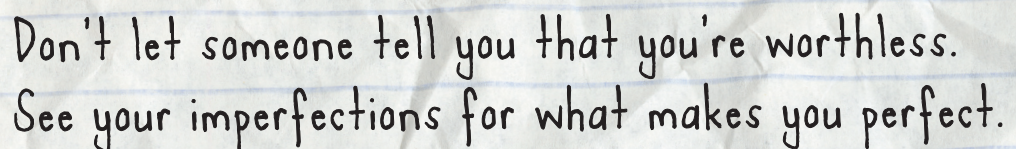 Don't let someone tell you that you're worthless.
See your imperfections for what makes you perfect.